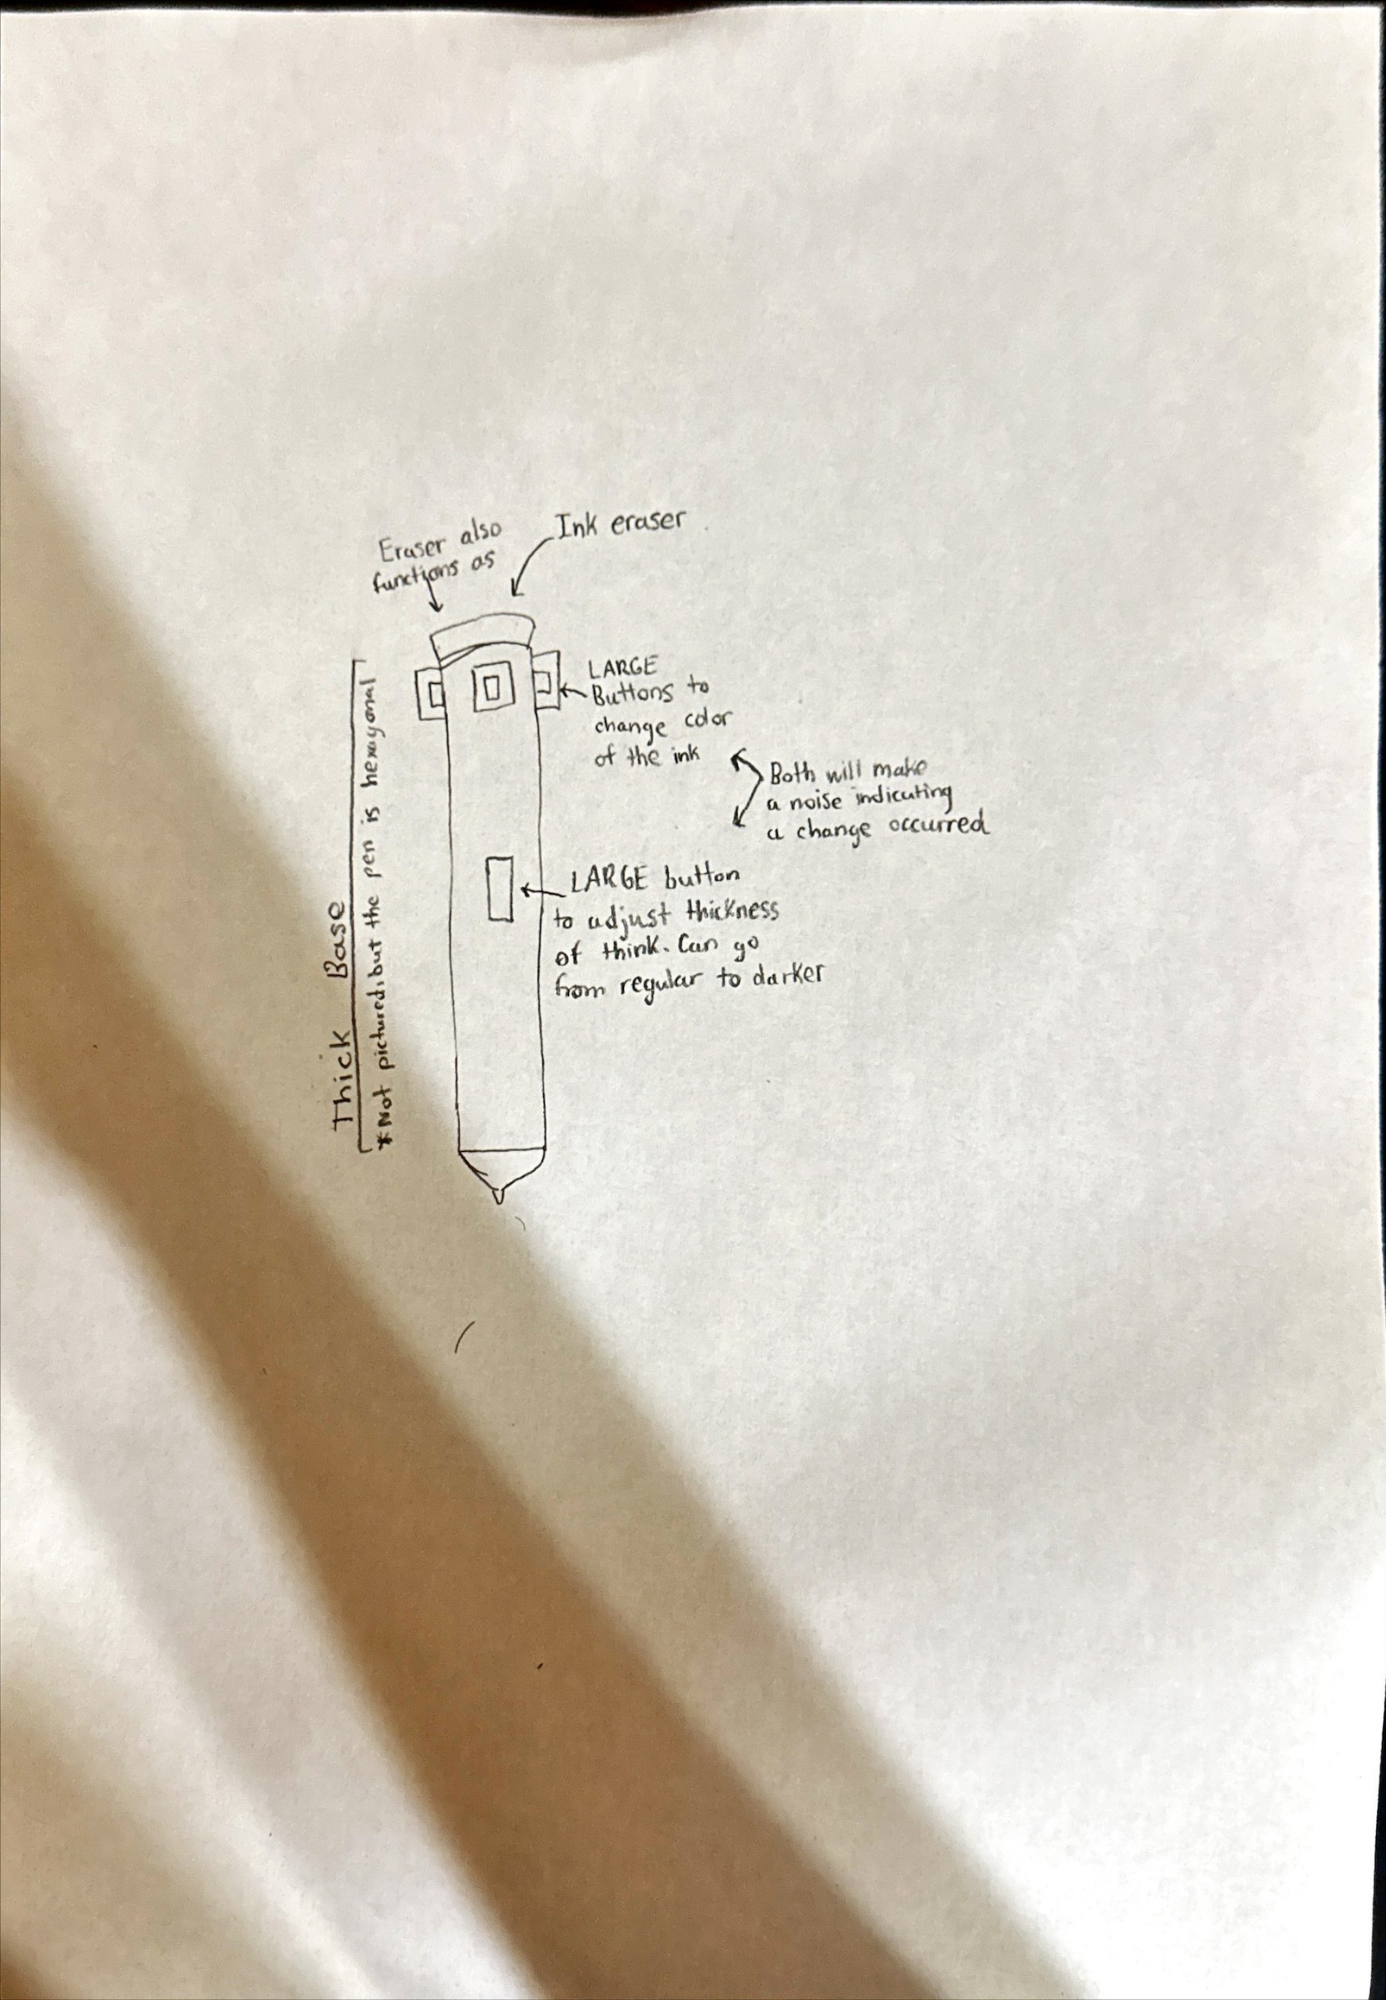 Eraser also
functions as
Ink eraser
LARGE
Buttons to
change color
of the ink
Both will make
a noise indicating
a change occurred
LARGE button
to adjust thickness
of think. Can go
from regular to darker
Thick Base
*Not pictured, but the pen is hexagonal